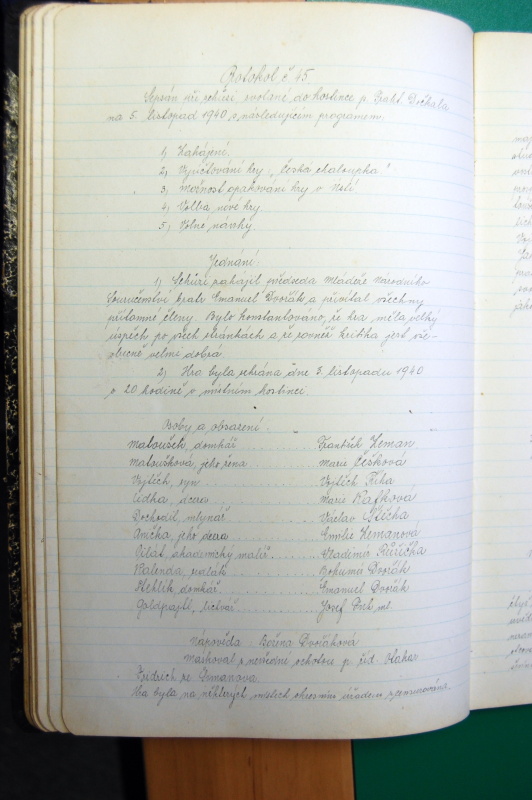 Protokol č 45
Sepsán při schůzi svolané do hostince p. Frant. Dočkala
na 5. listopad 1940 s následujícím programem.
1) Zahájení.
2) Vyúčtování hry „Česká chaloupka“
3) Možnost opakování hry v
4) Volba nové hry
5) Volné návrhy
Jednání:
1) Schůzi zahájil předseda Mládeže Národního
Souručenství bratr Emanuel Dvořák a přivítal všechny
přítomné členy. Bylo konstantováno, že hra měla velký
úspěch po všech stránkách a že rovněž kritika jest vše-
obecně velmi dobrá.
2) Hra byla sehrána dne 3. listopadu 1940
o 20 hodině v místním hostinci
Osoby a obsazení:
Matoušek, domkář František Zeman
Matoušková jeho žena Marie
Vojtěch, syn Vojtěch Říha
Lidka, dcera Marie Kafková
Dochodil, mlynář Václav
Anička, jeho dcera Emilie Zemanová
Pilát, akademický malíř Vladimír Růžička
Valenta, sedlák Bohumír Dvořák
Hehlík, domkář Emanuel Dvořák
Goldpajtl, lichvář Josef ml.
Nápověda: Božena Dvořáková
Maskoval s nevšední ochotou p. říd.
ze
Hra byla na některých místech okresním úřadem zcensurována.